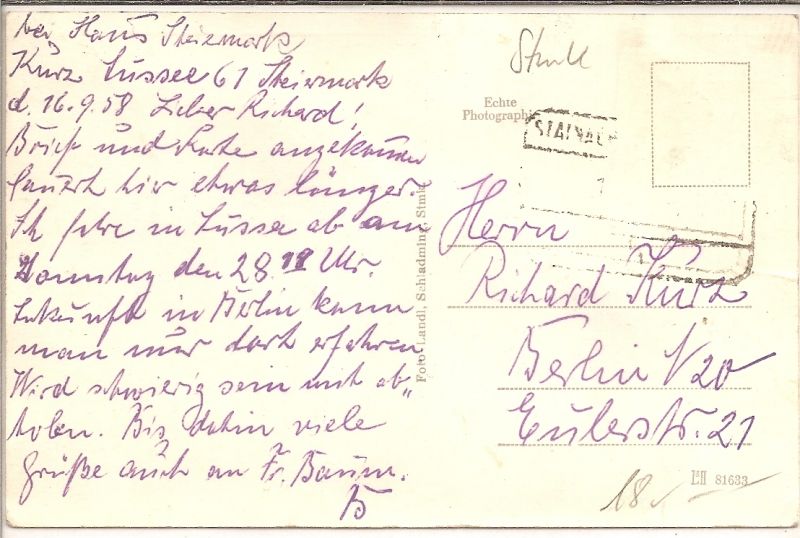 bei Haus Steiermark
Kurz Lussee 61 Steiermark
d. 16.9.58 Lieber Richard!
Brief und Karte angekommen
Dauert hier etwas länger.
Ich fahre in Lussee ab am
Sonntag den 28 11 Uhr.
Ankunft in Berlin kann
man nur dort erfahren
Wird schwierig sein mit ab„
holen. Bis dahin viele
Grüße auch an Fr. Baum.
Foto Landl, Schladming, Stmk.
Echte
Photographie
STAINACH
Herrn
Richard Kurz
Berlin N 20
Eulerstr. 21
81633
18